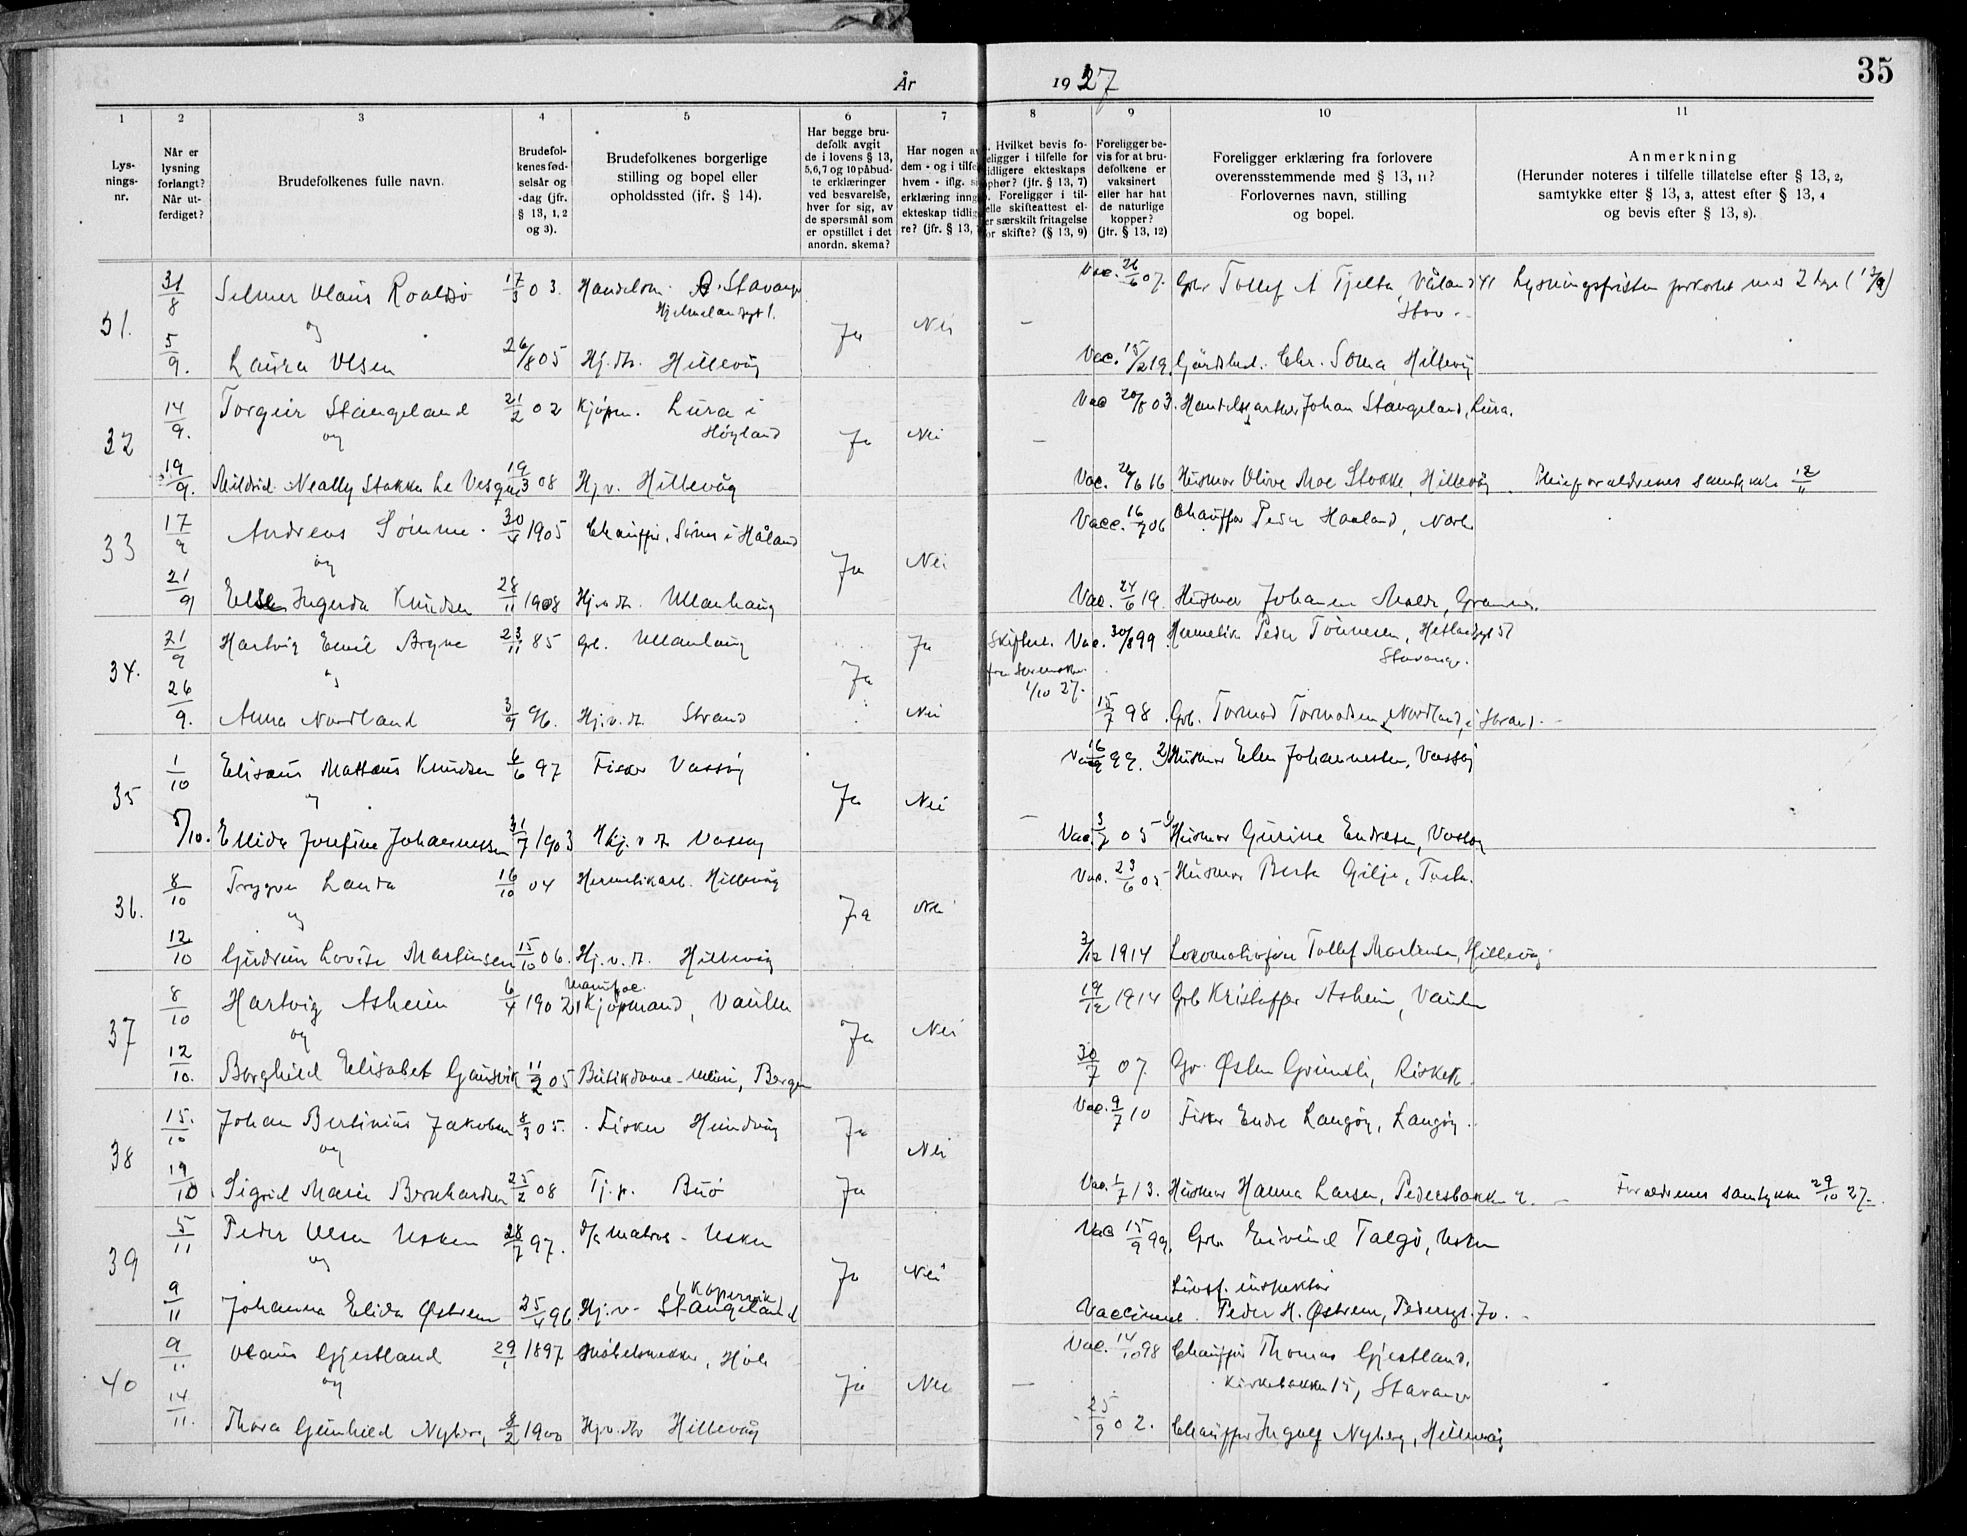 År 1927
35
1 2 3 4 5 6 7 8 9 10 11
Lysnings-nr.
Når er lysning forlangt? Når utferdiget?
Brudefolkenes fulle navn.
Brudefolkenes fødselsår og -dag (jfr. § 13, 1, 2 og 3).
Brudefolkenes borgerlige stilling og bopel eller opholdssted (jfr. § 14).
Har begge brudefolk avgit de i lovens § 13, 5,6,7 og 10 påbudte erklæringer ved besvarelse, hver for sig, av de spørsmål som er opstillet i det anordn. skema?
Har nogen a dem - og i tilfe hvem - iflg. si erklæring inng ekteskap tidlig re? (jfr. § 13,
Hvilket bevis fo eligger i tilfelle for idligere ekteskaps phør? (jfr. § 13, 7) Foreligger i til elle skifteattest el er særskilt fritagelse or skifte? (§ 13, 9)
Foreligger bevis for at brudefolkene er vaksinert eller har hat de naturlige kopper? (jfr. § 13, 12)
Foreligger erklæring fra forlovere overensstemmende med § 13, 11? Forlovernes navn, stilling og bopel.
Anmerkning (Herunder noteres i tilfelle tillatelse efter § 13, 2, samtykke efter § 13, 3, attest efter § 13, 4 og bevis efter § 13, 8).
31/8 Selmer Olaus Roaldsø 17/3 03. Stavanger Vac. 26/6 07. Tollef A Tjelta, Våland 41 Lysningsfristen forkortet med 2 dage
31. og Hjelmelandsgt 1. Ja Nei – Stav.
5/9. Laura Olsen 26/8 05 Hj. dt. Hillevåg Vac. 15/2 19 Chr. Soma, Hillevåg
14/9. Torgeir Stangeland 21/2 02 Kjøpm. Lura i Vac 20/8 03. Johan Stangeland, Lura.
32 og Høyland Ja Nei –
19/9. Mildrid Neally Stokka Le Vesque 19/3 08 Hj. v. Hillevåg Vac. 16 Husmor Olive Moe Stokke, Hillevåg samtykke
17/9 Andreas Sømme 30/4 1905 Chauffør, Sømme i Håland Vacc. 16/7 06 Chauffør Peder Haaland,
33 og Ja Nei
21/9 Else Ingerda Knudsen 28/11 1908 Hj. v. dt. Ullenhaug Vac. 24/6 19. Husmor Johanne
21/9 Hartvig Emil Bryne 23/11 85 Grb. Ullenhaug Ja Vac. 30/8 99 Peder Tønnesen, Hetlandsgt 51
34. og Ja fra 1/10 27. Stavanger.
26/9. Anna Nordland 3/9 96. Hj. v. dt. Strand Nei 15/7 98. Grb. Tormod Tormodsen Nordland, i Strand.
1/10 Elisæus Mattæus Knudsen 6/6 97 Fisker Vassøy Vac 16/9 99. Husmor Elen Johannessen, Vassøy
35 og Ja Nei –
5/10. Ellida Josefine Johannessen 31/7 1903 Hj. v dt Vassøy Vac. 3/7 05 Husmor Gurine Endresen, Vassøy
8/10 Trygve Landa 16/10 04 Hermetikarb. Hillevåg Vac. 23/6 05 Husmor Berta Gilje, Tasta.
36. og Ja Nei
12/10 Gudrun Lovise Martinsen 15/10 06. Hj. v. dt. Hillevåg 3/12 1914 Tollef Martinsen, Hillevåg
8/10 Hartvig Asheim 6/4 1902 Manufac. Kjøpmand, Vaulen 19/12 1914 Grb Kristoffer Asheim, Vaulen
37 og Ja Nei
12/10. Borghild Elisabet Gausvik 11/2 05 Bergen 30/7 07. Østen
15/10 Johan Bertinius Jakobsen 8/3 05. Fisker Hundvåg Ja Vac. 9/7 10 Fisker Endre Langøy, Langøy.
38 og Nei
19/10 Sigrid Marie Bernhardsen 25/2 08 Tj. p. Buø Ja Vac. 1/7 13. Husmor Hanna Larsen, Pedersbakken Forældrenes samtykke 29/10 27.
5/11 Peder Olsen Usken 28/7 97. Matros - Usken Vac 15/9 99. Grb. Eivind Talgø, Usken
39 og Ja Nei
9/11 Johanna Elida Østrem 25/4 96. Hj. v. Stangeland i Kopervik Vaccinert. Livsf. inspektør Peder H. Østrem, Pedersgt. 70.
9/11 Olaus Gjestland 29/1 1897 Møbelsnekker, Høle Vac. 14/10 98 Chauffør Thomas Gjestland,
40 og Ja Nei – Kirkebakken 15, Stavanger
14/11. Thora Gunhild Nyberg, 8/2 1900 Hj. v. dt. Hillevåg 25/9 02. Chauffør Ingolf Nyberg, Hillevåg